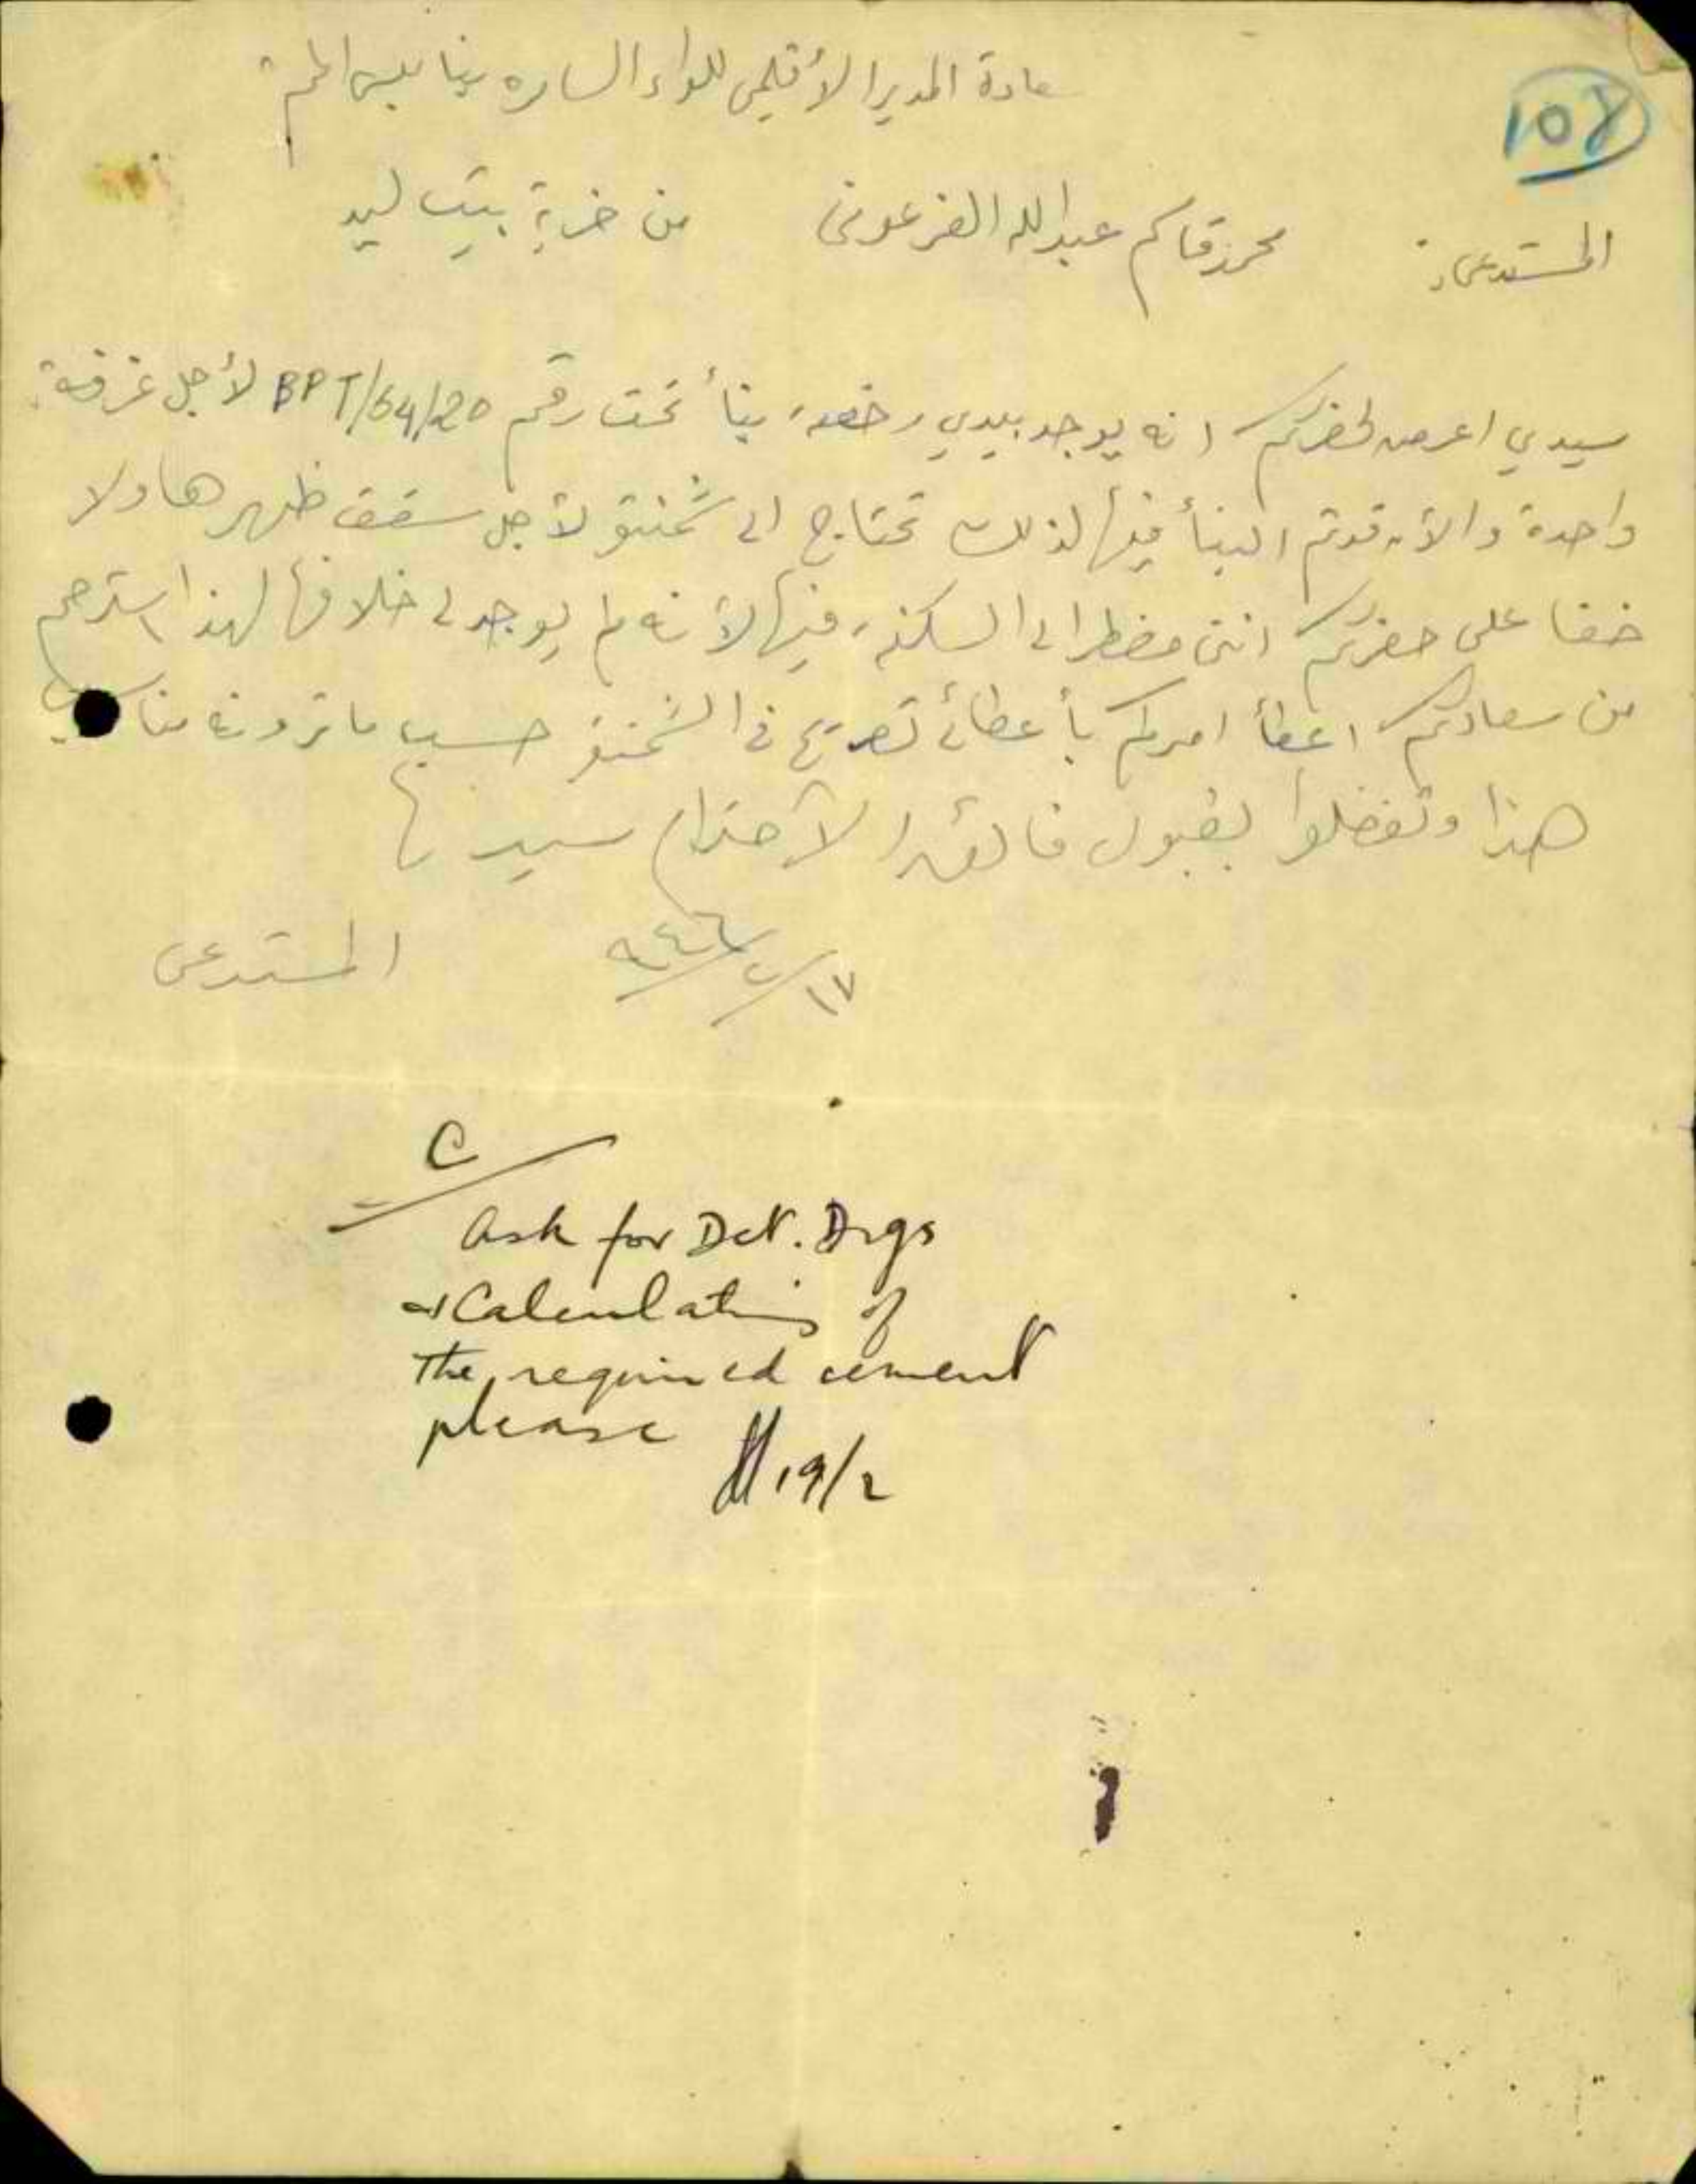 108
سعادة المدير الأقليمي للواء السامره بنابلس المحترم
المستدعي: محمد قاسم عبدالله الفرعوني من خربة بيت ليد
سيدي اعرض لحضرتكم انه يوجد بيدي رخصه بنأ تحت رقم BPT/64/20 لأجل غرفة
واحدة والآن قد تم البنأ فيها لذلك تحتاج الى شمنتو لأجل سقف ظهرها ولا
خفا على حضرتكم انني مضطر الى السكنه فيها لأنه لم يوجد لي خلافها لهذا استرحم
من سعادتكم اعطأ امركم بأعطائي تصريح في الشمنتو حسب ما ترونه مناسب
هذا وتفضلوا بقبول فائق الأحترام سيدي
١٧/٢/٩٤٦ المستدعي
C
Ask for Det. Drgs
& Calculations of
the required cement
please
19/2